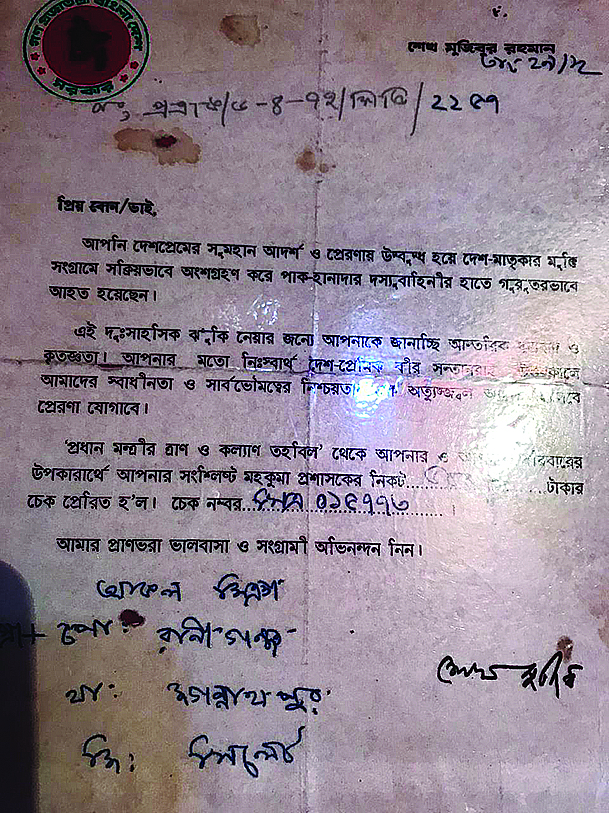 গণ প্রজাতন্ত্রী বাংলা দেশ
সরকার
শেখ মুজিবুর রহমান
নং প্রত্রাক/৬-৪-৭২/সিডি/
প্রিয় বোন/ভাই,
আপনি দেশপ্রেমের সুমহান আদর্শ ও প্রেরণায় উদ্বুদ্ধ হয়ে দেশ-মাতৃকার মুক্তি
সংগ্রামে সক্রিয়ভাবে অংশগ্রহণ করে পাক-হানাদার দস্যুবাহিনীর হাতে গুরুতরভাবে
আহত হয়েছেন।
এই দুঃসাহসিক ঝুঁকি নেয়ার জন্যে আপনাকে জানাচ্ছি আন্তরিক ও
কৃতজ্ঞতা। আপনার মতো নিঃস্বার্থ দেশ-প্রেমিক বীর সন্তানরাই
আমাদের স্বাধীনতা ও সার্বভৌমত্বের নিশ্চয়তা অত্যুজ্জ্বল
প্রেরণা যোগাবে।
'প্রধান মন্ত্রীর ত্রাণ ও কল্যাণ তহবিল' থেকে আপনার ও পরিবারের
উপকারার্থে আপনার সংশ্লিষ্ট মহকুমা প্রশাসকের নিকট.... ....টাকার
চেক প্রেরিত হ'ল। চেক নম্বর.... ০১৫৭৭৩....।
আমার প্রাণভরা ভালবাসা ও সংগ্রামী অভিনন্দন নিন।
পোঃ রানীগঞ্জ
থাঃ জগন্নাথপুর
শেখ মুজিব
জিঃ সিলেট